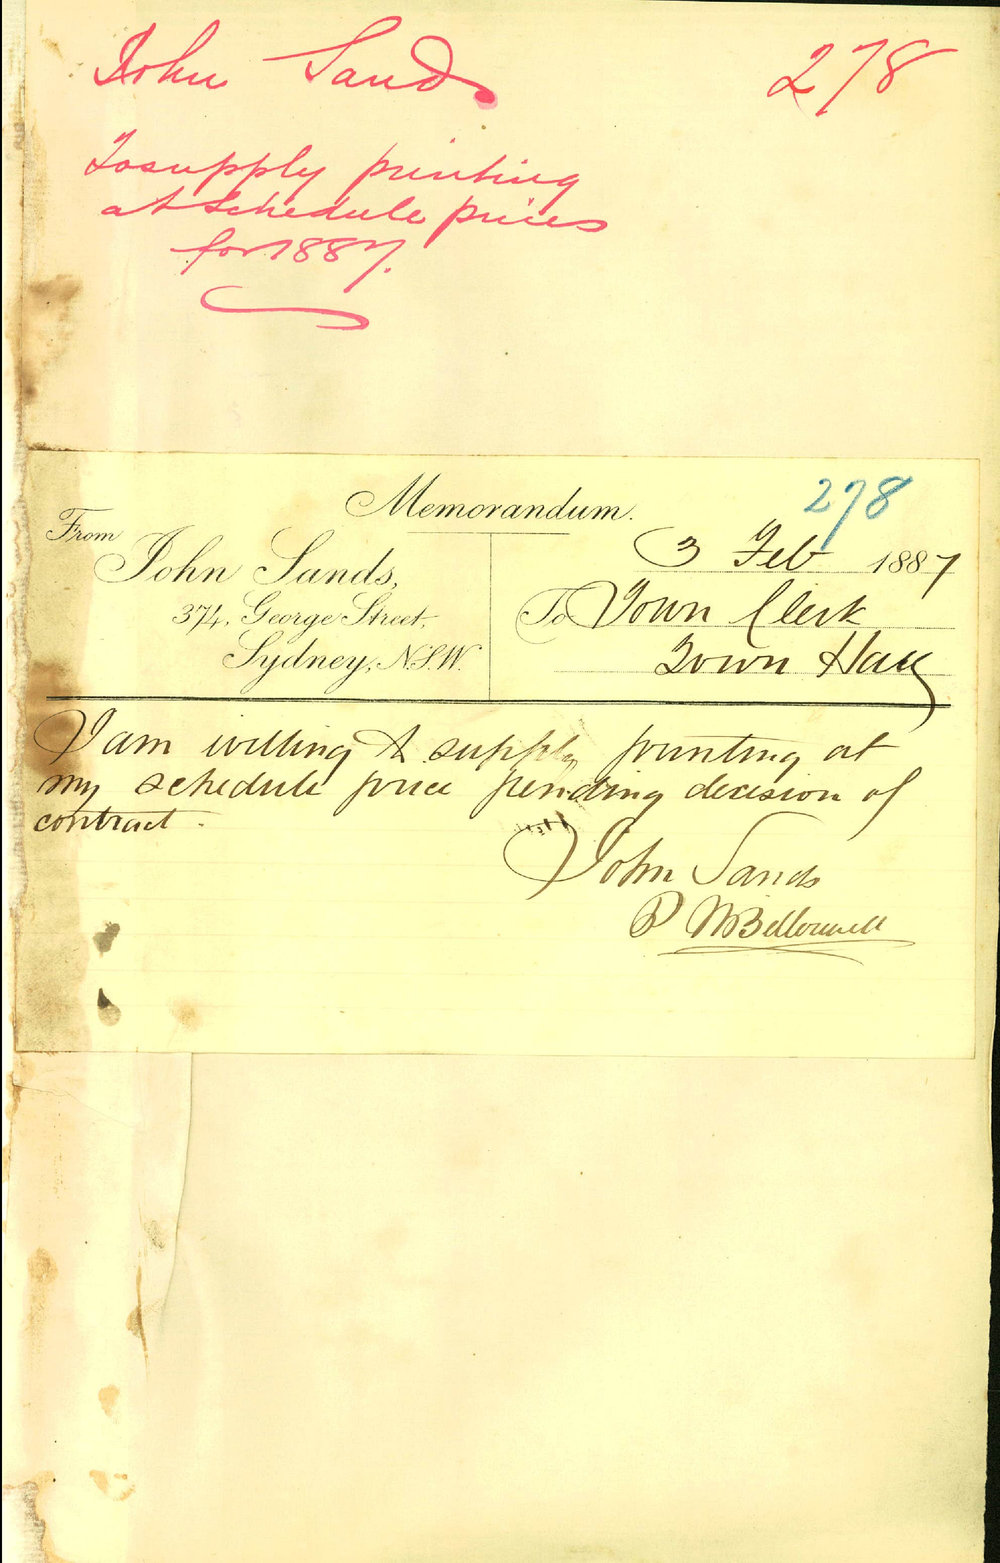 John Sands 278
To supply printing
at Schedule prices
for 1887.
Memorandum. 278
From
John Sands,
374, George Street,
Sydney, N.S.W.
3 Feb 1887
To Town Clerk
Town Hall
I am willing to supply printing at
my schedule price pending decision of
contract.
John Sands
P